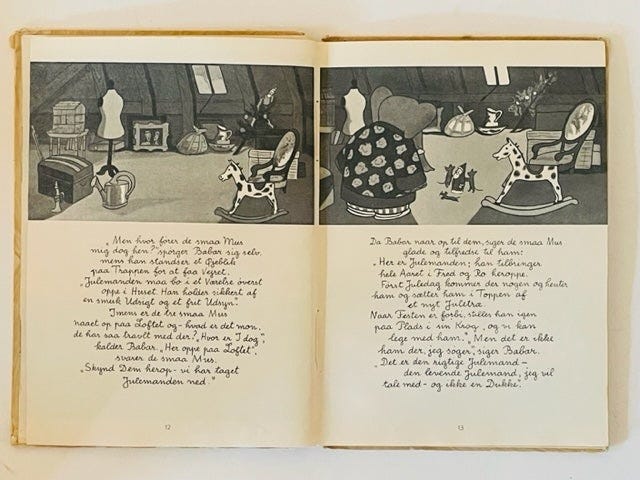 „Men hvor fører de smaa Mus
mig dog hen?" spørger Babar sig selv,
mens han standser et Øjeblik
paa Trappen for at faa Vejret.
„Julemanden maa bo i et Værelse øverst
oppe i Huset. Han holder sikkert af
en smuk Udsigt og et frit Udsyn".
Imens er de tre smaa Mus
naaet op paa Loftet og - hvad er det mon,
de har saa travlt med der? „Hvor er I dog,"
kalder Babar. „Her oppe paa Loftet",
svarer de smaa Mus.
„Skynd Dem herop - vi har taget
Julemanden ned."
12
Da Babar naar op til dem, siger de smaa Mus
glade og tilfredse til ham:
„Her er Julemanden; han tilbringer
hele Aaret i Fred og Ro heroppe.
Først Juledag kommer der nogen og henter
ham og sætter ham i Toppen af
et nyt Juletræ.
Naar Festen er forbi, stilles han igen
paa Plads i sin Krog, og vi kan
lege med ham." „Men det er ikke
ham der, jeg søger", siger Babar.
„Det er den rigtige Julemand -
den levende Julemand, jeg vil
tale med - og ikke en Dukke".
13